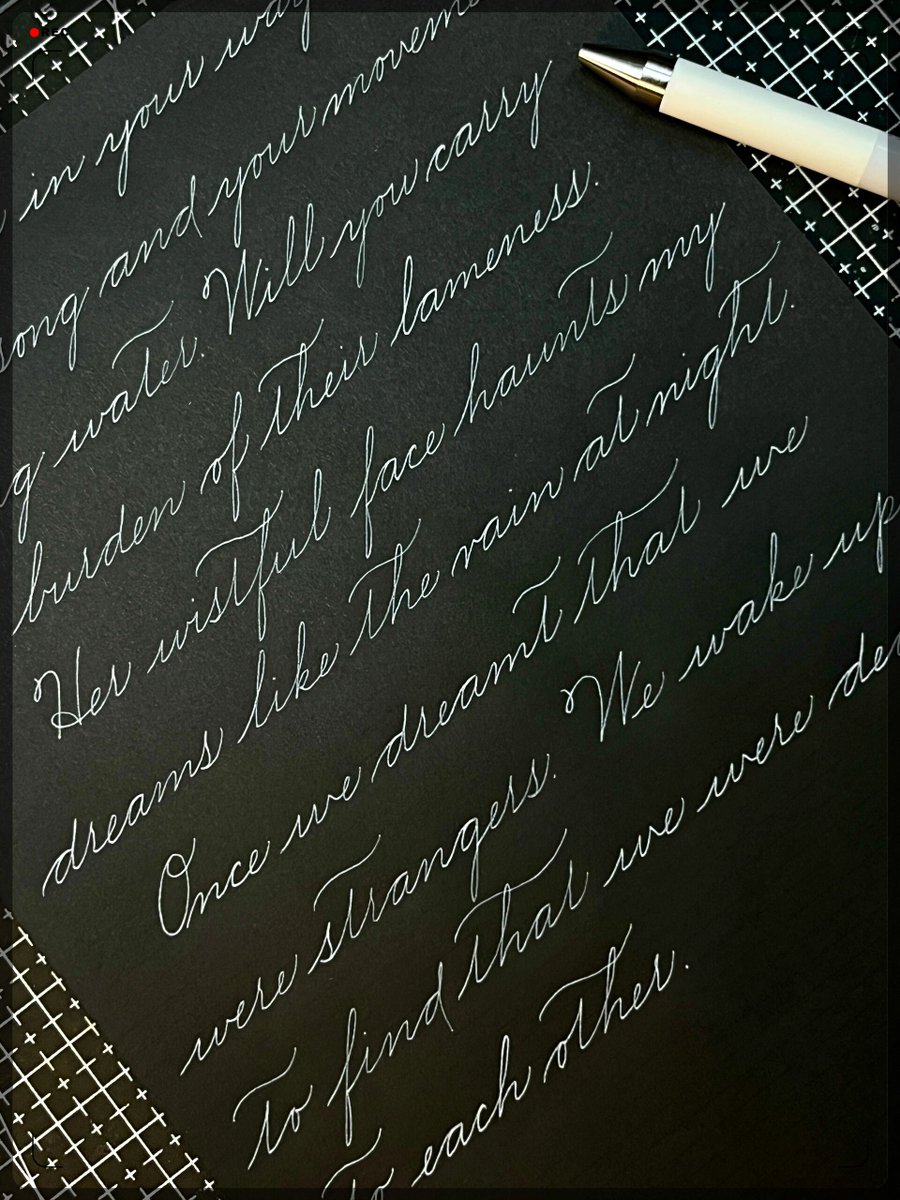 15
in your way
song and your movem
g water. Will you carry
burden of their lameness.
Her wistful face haunts my
dreams like the rain at night.
Once we dreamt that we
were strangers. We wake up
To find that we were dea
To each other.